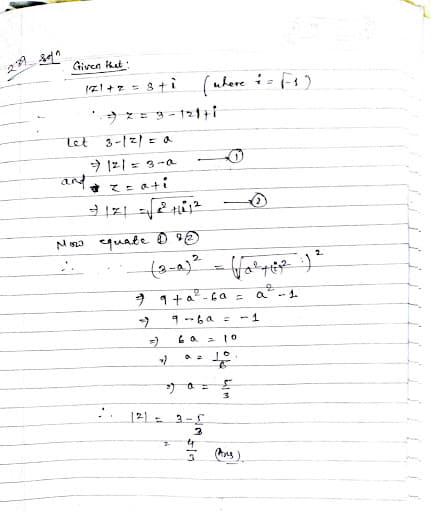 Given that:
|z| + z = 3 + i (where i = √-1)
⇒ z = 3 - |z| + i
Let 3 - |z| = a
⇒ |z| = 3 - a ①
and z = a + i
⇒ |z| = √a² + (i)² ②
Now equate ① & ②
∴ (3-a)² = (√a² + (i)²)²
⇒ 9 + a² - 6a = a² - 1
⇒ 9 - 6a = -1
⇒ 6a = 10
⇒ a = 10/6
⇒ a = 5/3
∴ |z| = 3 - 5/3
= 4/3 (Ans)